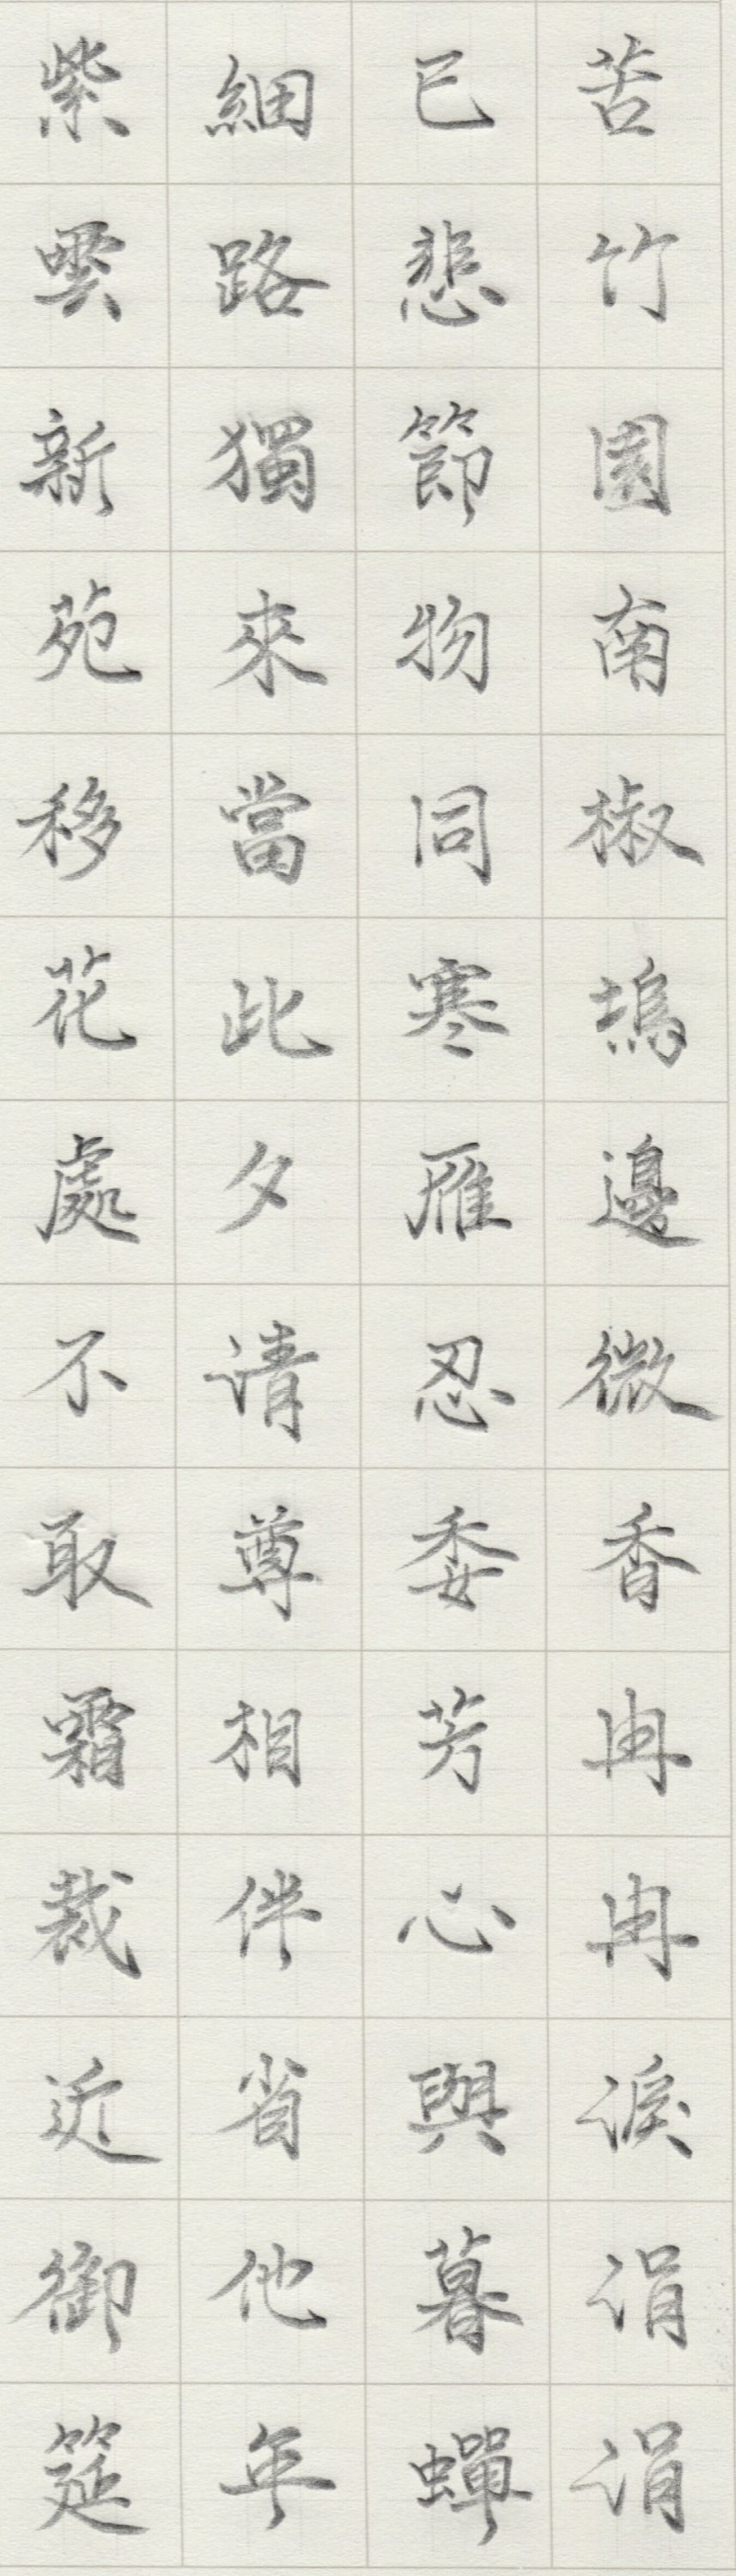 苦竹園南椒塢邊微香冉冉淚涓涓
已悲節物同寒雁忍委芳心與暮蟬
細路獨來當此夕请尊相伴省他年
紫雲新苑移花處不取霜裁近御筵